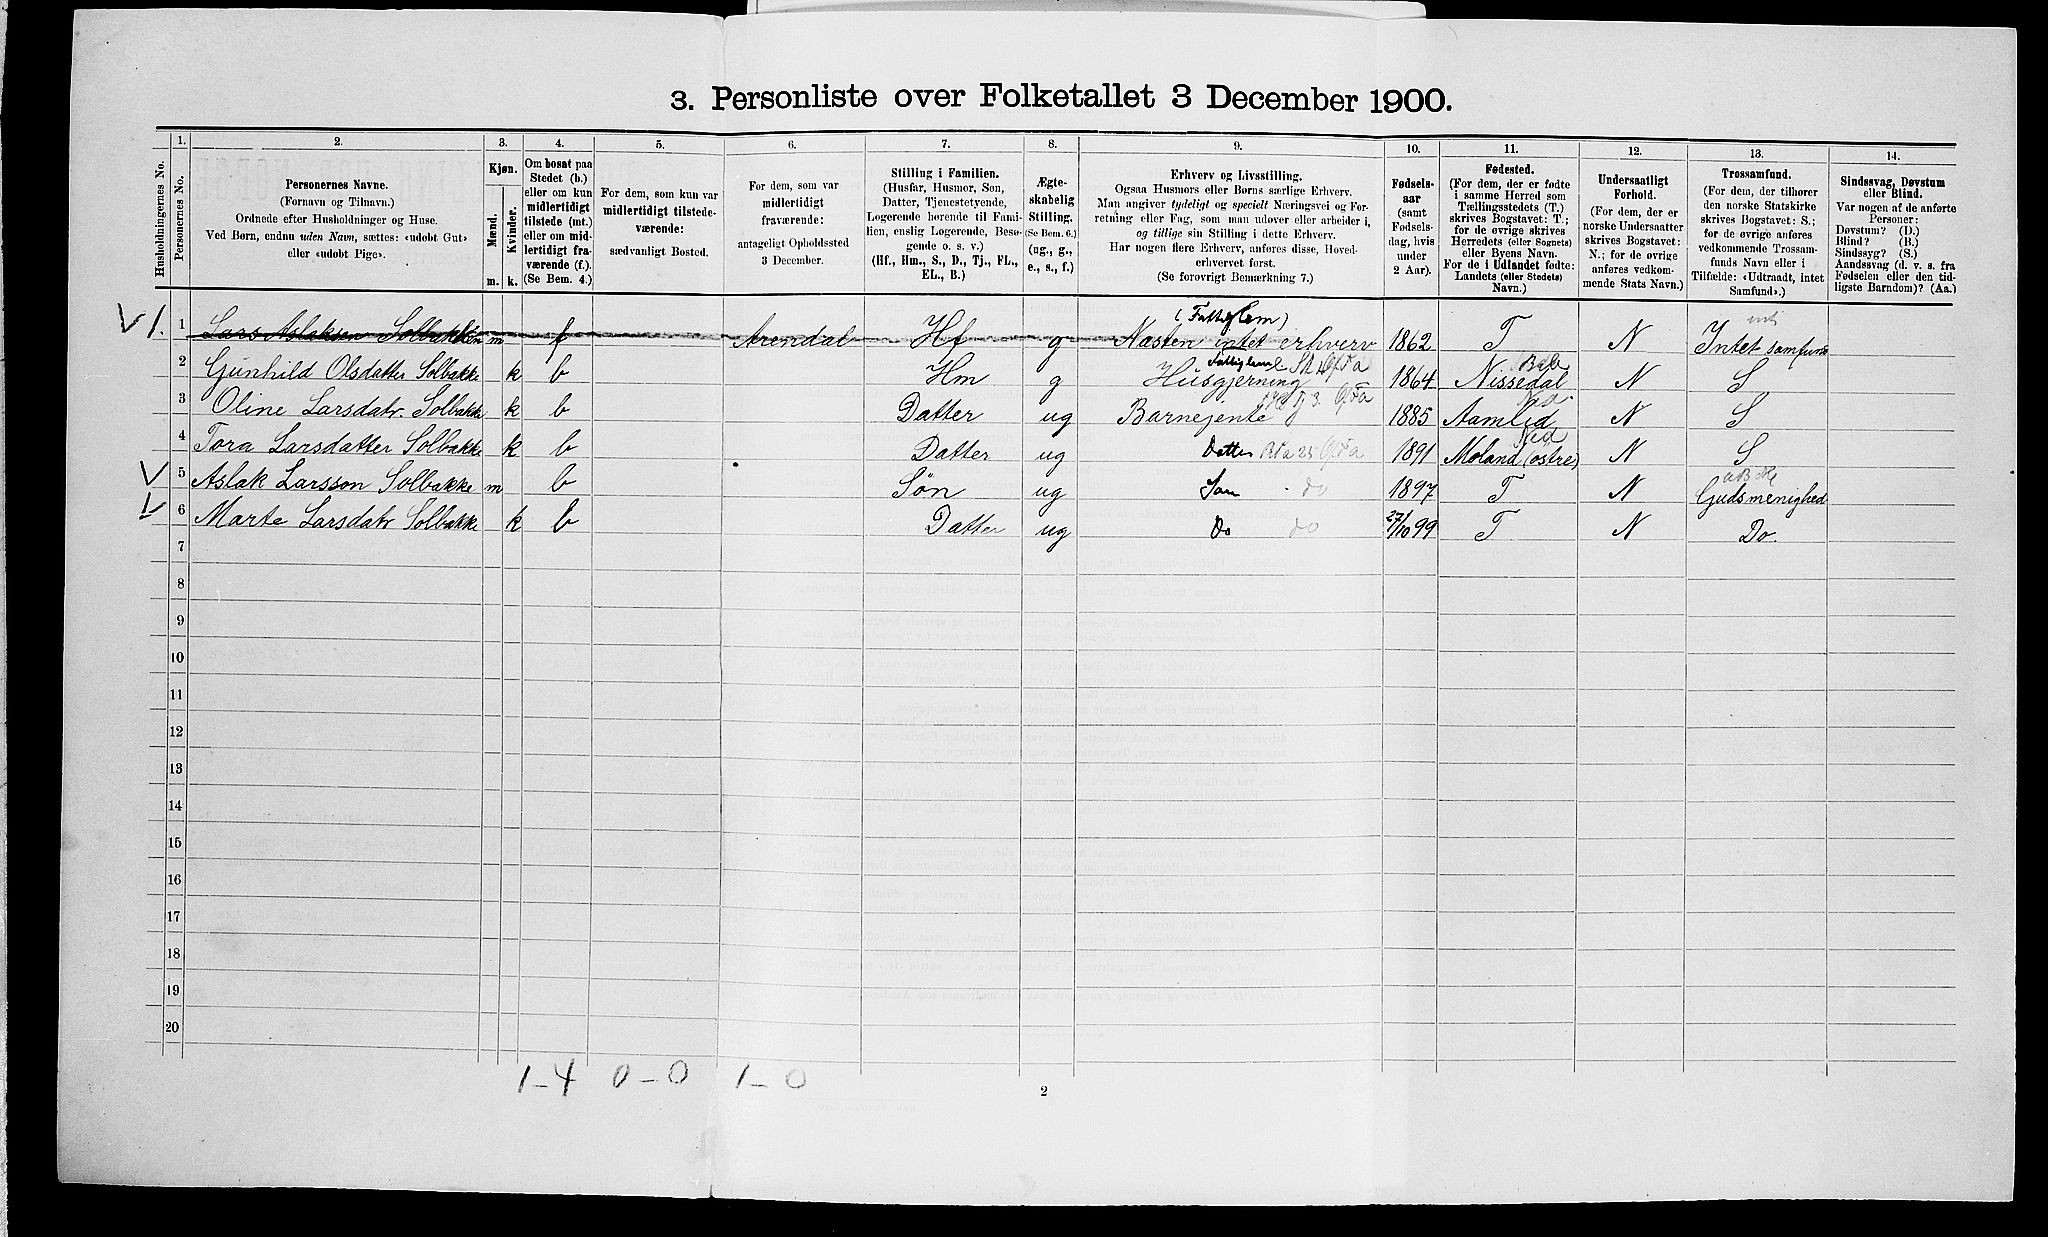 3. Personliste over Folketallet 3 December 1900.
Husholdningernes No.
1.
Personernes No.
2.
Personernes Navne.
(Fornavn og Tilnavn.)
Ordnede efter Husholdninger og Huse.
Ved Børn, endnu uden Navn, sættes: «udobt Gut»
eller «udobt Pige».
3.
Kjøn.
Mænd.
Kvinder.
m. k.
4.
Om bosat paa
Stedet (b.)
eller om kun
midlertidigt
tilstede (mt.)
eller om mid-
lertidigt fra-
værende (f.).
(Se Bem. 4.)
5.
For dem, som kun var
midlertidigt tilstede-
værende:
sædvanligt Bosted.
6.
For dem, som var
midlertidigt
fraværende:
antageligt Opholdssted
3 December.
7.
Stilling i Familien.
(Husfar, Husmor, Søn,
Datter, Tjenestetyende,
Logerende hørende til Fami-
lien, enslig Logerende, Besø-
gende o. s. v.)
(Hf., Hm., S., D., Tj., FL.,
EL., B.)
8.
Ægte-
skabelig
Stilling.
(Se Bem. 6.)
(ug., g.,
e., s., f.)
9.
Erhverv og Livsstilling.
Ogsaa Husmors eller Børns særlige Erhverv.
Man angiver tydeligt og specielt Næringsvei og For-
retning eller Fag, som man udøver eller arbeider i,
og tillige sin Stilling i dette Erhverv.
Har nogen flere Erhverv, anføres disse, Hoved-
erhvervet først.
(Se forøvrigt Bemærkning 7.)
10.
Fødsels-
aar
(samt
Fødsels-
dag, hvis
under
2 Aar).
11.
Fødested.
(For dem, der er fødte
i samme Herred som
Tællingsstedets (T.)
skrives Bogstavet: T.;
for de øvrige skrives
Herredets (eller Sognets)
eller Byens Navn.
For de i Udlandet fødte:
Landets (eller Stedets)
Navn.)
12.
Undersaatligt
Forhold.
(For dem, der er
norske Undersaatter
skrives Bogstavet:
N.; for de øvrige
anføres vedkom-
mende Stats Navn.)
13.
Trossamfund.
(For dem, der tilhører
den norske Statskirke
skrives Bogstavet: S.;
for de øvrige anføres
vedkommende Trossam-
funds Navn eller i
Tilfælde: «Udtraadt, intet
Samfund».)
14.
Sindssvag, Døvstum
eller Blind.
Var nogen af de anførte
Personer:
Døvstum? (D.)
Blind? (B.)
Sindssyg? (S.)
Aandssvag (d. v. s. fra
Fødselen eller den tid-
ligste Barndom)? (Aa.)
(Fattiglem)
V 1. 1 Lars Aslaksen Solbakken m f Arendal Hf g Næsten intet erhverv 1862 T N Intet samfund
Fattiglem
2 Gunhild Olsdatter Solbakke k b Hm g Husgjerning 1864 Nissedal N S
3 Oline Larsdatr. Solbakke k b Datter ug Barnejente 1885 Aamlid N S
Ned
4 Tora Larsdatter Solbakke k b Datter ug Datter 1891 Moland (østre) N S
V 5 Aslak Larsson Solbakke m b Søn ug Søn do 1897 T N Gudsmenighed
V 6 Marte Larsdatr Solbakke k b Datter ug Do do 27/10 99 T N Do.
7
8
9
10
11
12
13
14
15
16
17
18
19
20
1-4 0-0 1-0
2